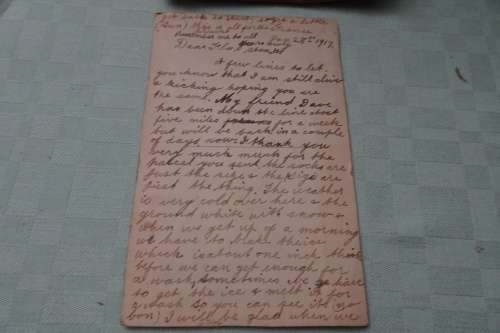 get back to
a little
(Gun)
France
Remember me to all
Jan 28th 1917
Dear
A few lines to let
you know that I am still alive
a kicking hoping you are
the same. My friend Dave
has been down the line about
five miles for a week
but will be back in a couple
of days now. I thank you
very much much for the
parcel you send the socks are
just the size & the cigs are
just the thing. The weather
is very cold over here & the
ground white with snow &
when we get up of a morning
we have to brake the ice
which is about one inch thick
before we can get enough for
a wash, sometimes we have
to get the ice & melt it for
a wash so you can see its no
bon) I will be glad when we